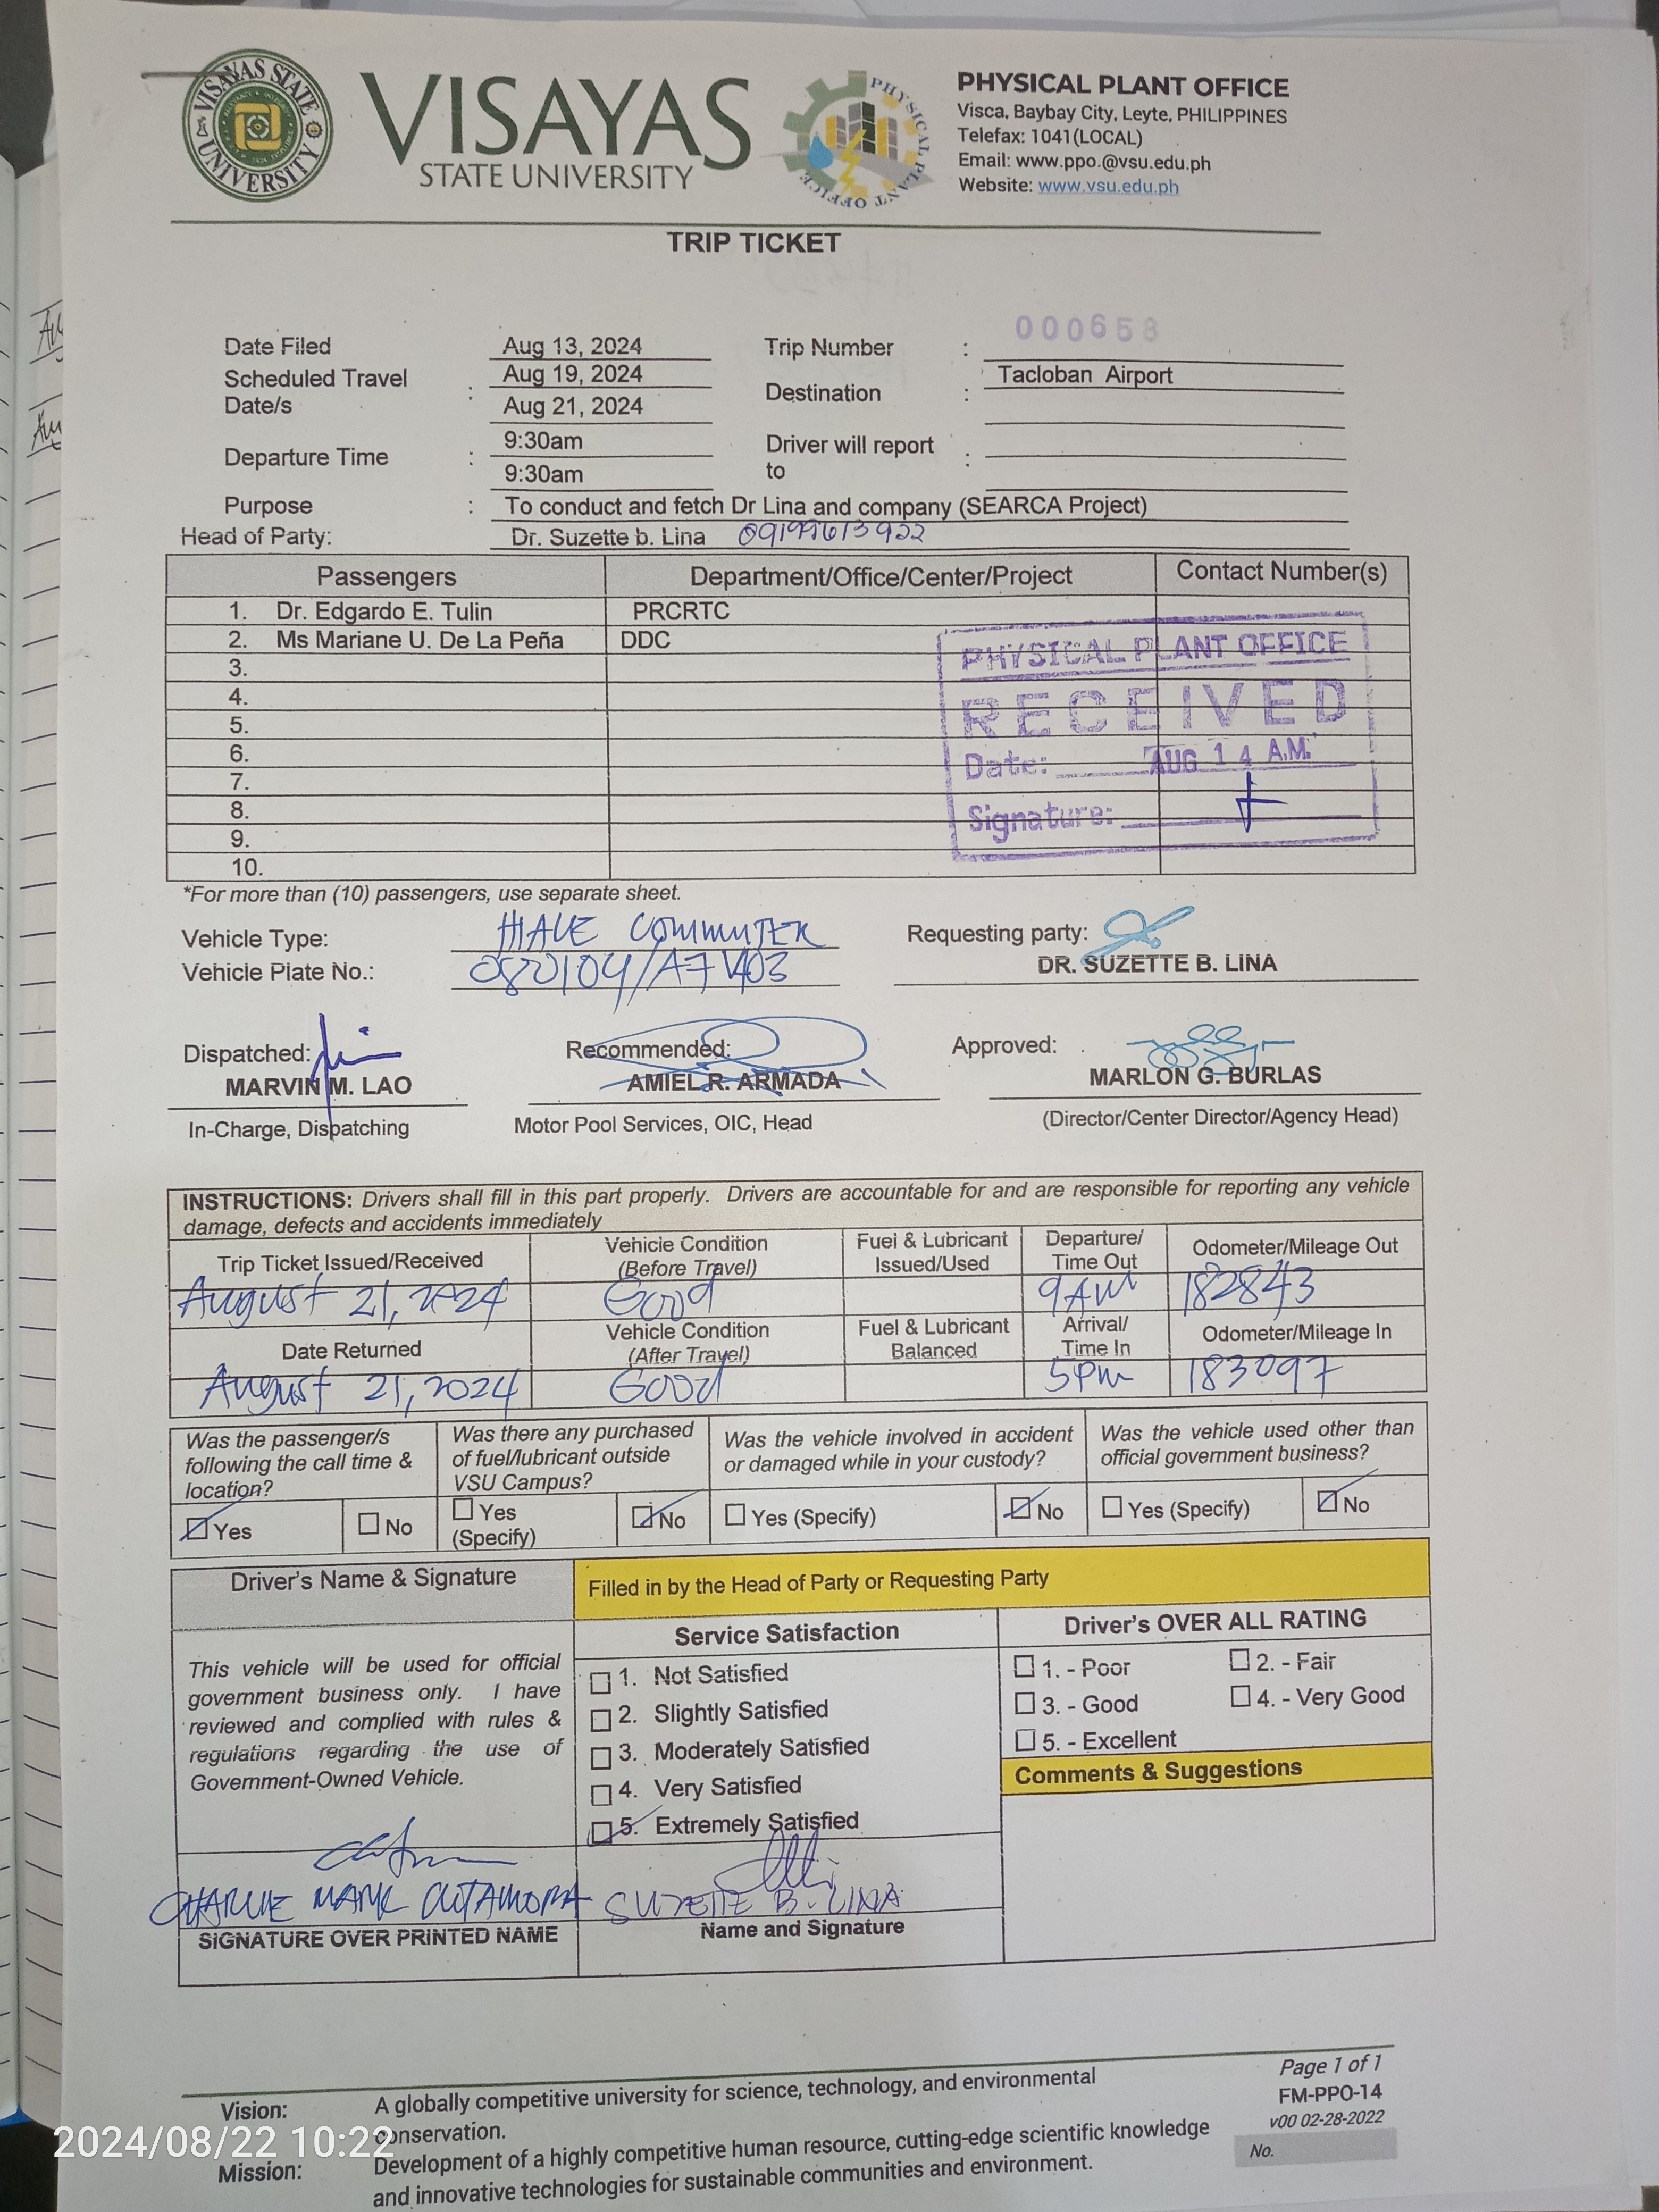 VISAYAS STATE UNIVERSITY
VISAYAS
STATE UNIVERSITY
PHYSICAL PLANT OFFICE
PHYSICAL PLANT OFFICE
Visca, Baybay City, Leyte, PHILIPPINES
Telefax: 1041(LOCAL)
Email: www.ppo.@vsu.edu.ph
Website: www.vsu.edu.ph
TRIP TICKET
000658
Date Filed Aug 13, 2024 Trip Number :
Scheduled Travel Date/s : Aug 19, 2024 Destination : Tacloban Airport
Aug 21, 2024
Departure Time : 9:30am Driver will report to :
9:30am
Purpose : To conduct and fetch Dr Lina and company (SEARCA Project)
Head of Party: Dr. Suzette b. Lina 09199613922
Passengers Department/Office/Center/Project Contact Number(s)
1. Dr. Edgardo E. Tulin PRCRTC
2. Ms Mariane U. De La Peña DDC
3.
4.
5.
6.
7.
8.
9.
10.
PHYSICAL PLANT OFFICE
RECEIVED
Date: AUG 14 A.M.
Signature:
*For more than (10) passengers, use separate sheet.
Vehicle Type: HIACE COMMUTER Requesting party:
Vehicle Plate No.: 080104/A7V403 DR. SUZETTE B. LINA
Dispatched: Recommended: Approved:
MARVIN M. LAO AMIEL R. ARMADA MARLON G. BURLAS
In-Charge, Dispatching Motor Pool Services, OIC, Head (Director/Center Director/Agency Head)
INSTRUCTIONS: Drivers shall fill in this part properly. Drivers are accountable for and are responsible for reporting any vehicle
damage, defects and accidents immediately
Trip Ticket Issued/Received Vehicle Condition (Before Travel) Fuel & Lubricant Issued/Used Departure/ Time Out Odometer/Mileage Out
August 21, 2024 Good 9AM 182843
Date Returned Vehicle Condition (After Travel) Fuel & Lubricant Balanced Arrival/ Time In Odometer/Mileage In
August 21, 2024 Good 5pm 183097
Was the passenger/s following the call time & location? Was there any purchased of fuel/lubricant outside VSU Campus? Was the vehicle involved in accident or damaged while in your custody? Was the vehicle used other than official government business?
Yes No Yes (Specify) No Yes (Specify) No Yes (Specify) No
Driver's Name & Signature Filled in by the Head of Party or Requesting Party
Service Satisfaction Driver's OVER ALL RATING
This vehicle will be used for official
government business only. I have
reviewed and complied with rules &
regulations regarding the use of
Government-Owned Vehicle.
1. Not Satisfied
2. Slightly Satisfied
3. Moderately Satisfied
4. Very Satisfied
5. Extremely Satisfied
1. - Poor 2. - Fair
3. - Good 4. - Very Good
5. - Excellent
Comments & Suggestions
CHARLIE MARK CUTAMORA SUZETTE B. LINA
SIGNATURE OVER PRINTED NAME Name and Signature
Page 1 of 1
FM-PPO-14
v00 02-28-2022
No.
Vision: A globally competitive university for science, technology, and environmental
conservation.
Mission: Development of a highly competitive human resource, cutting-edge scientific knowledge
and innovative technologies for sustainable communities and environment.
2024/08/22 10:22